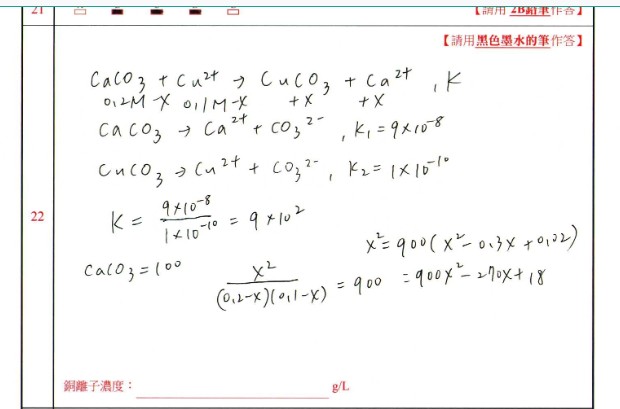 21
【請用 2B鉛筆作答】
【請用黑色墨水的筆作答】
CaCO₃ + Cu²⁺ → CuCO₃ + Ca²⁺ , K
0.2M -X 0.1M -X +X +X
CaCO₃ → Ca²⁺ + CO₃²⁻ , K₁ = 9×10⁻⁸
CuCO₃ → Cu²⁺ + CO₃²⁻ , K₂ = 1×10⁻¹⁰
22
K = 9×10⁻⁸ / 1×10⁻¹⁰ = 9×10²
X² = 900(X² - 0.3X + 0.02)
CaCO₃ = 100
X² / (0.2-X)(0.1-X) = 900
= 900X² - 270X + 18
銅離子濃度：
g/L